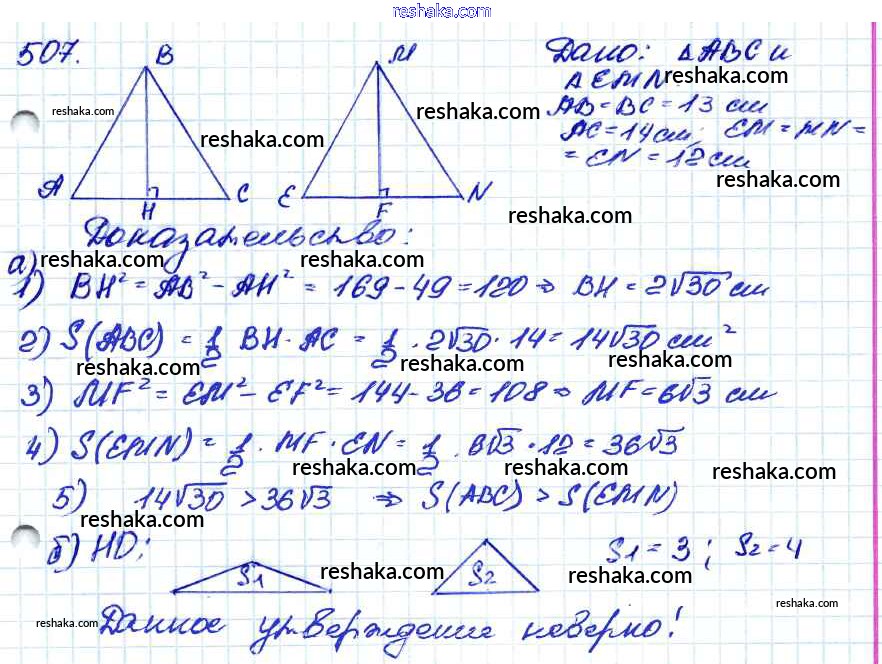 reshaka.com
507. B M Дано: △ABC и
△EMN
reshaka.com reshaka.com reshaka.com reshaka.com
AB=BC=13 см
AC=14см; EM=MN=
=EN=12см
reshaka.com
A H C E F N
reshaka.com
Доказательство:
а) reshaka.com reshaka.com reshaka.com
1) BH² = AB² - AH² = 169-49=120 ⇒ BH=2√30 см
2) S(ABC) = 1/2 BH·AC = 1/2 · 2√30 · 14 = 14√30 см²
reshaka.com reshaka.com reshaka.com
3) MF² = EM² - EF² = 144-36=108 ⇒ MF=6√3 см
4) S(EMN) = 1/2 · MF·EN = 1/2 · 6√3 · 12 = 36√3
reshaka.com reshaka.com reshaka.com
5) 14√30 > 36√3 ⇒ S(ABC) > S(EMN)
reshaka.com
б) НО: S1 S2 S1=3; S2=4
reshaka.com reshaka.com
reshaka.com reshaka.com
Данное утверждение неверно!
reshaka.com